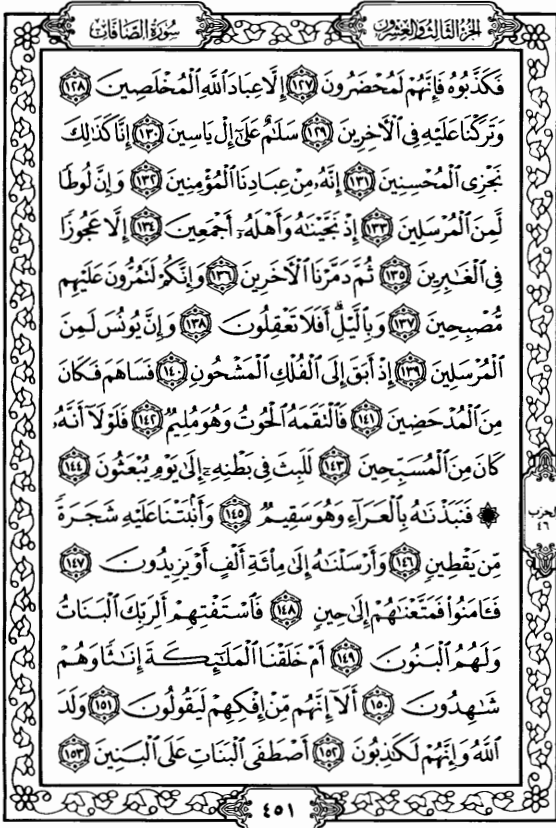 سُورَةُ الصَّافَّاتِ
الجُزْءُ الثَّالِثُ وَالعِشْرُونَ
فَكَذَّبُوهُ فَإِنَّهُمْ لَمُحْضَرُونَ ١٢٧ إِلَّا عِبَادَ ٱللَّهِ ٱلْمُخْلَصِينَ ١٢٨
وَتَرَكْنَا عَلَيْهِ فِى ٱلْءَاخِرِينَ ١٢٩ سَلَٰمٌ عَلَىٰٓ إِلْ يَاسِينَ ١٣٠ إِنَّا كَذَٰلِكَ
نَجْزِى ٱلْمُحْسِنِينَ ١٣١ إِنَّهُۥ مِنْ عِبَادِنَا ٱلْمُؤْمِنِينَ ١٣٢ وَإِنَّ لُوطًا
لَّمِنَ ٱلْمُرْسَلِينَ ١٣٣ إِذْ نَجَّيْنَٰهُ وَأَهْلَهُۥٓ أَجْمَعِينَ ١٣٤ إِلَّا عَجُوزًا
فِى ٱلْغَٰبِرِينَ ١٣٥ ثُمَّ دَمَّرْنَا ٱلْءَاخَرِينَ ١٣٦ وَإِنَّكُمْ لَتَمُرُّونَ عَلَيْهِم
مُّصْبِحِينَ ١٣٧ وَبِٱلَّيْلِۗ أَفَلَا تَعْقِلُونَ ١٣٨ وَإِنَّ يُونُسَ لَمِنَ
ٱلْمُرْسَلِينَ ١٣٩ إِذْ أَبَقَ إِلَى ٱلْفُلْكِ ٱلْمَشْحُونِ ١٤٠ فَسَاهَمَ فَكَانَ
مِنَ ٱلْمُدْحَضِينَ ١٤١ فَٱلْتَقَمَهُ ٱلْحُوتُ وَهُوَ مُلِيمٌ ١٤٢ فَلَوْلَآ أَنَّهُۥ
كَانَ مِنَ ٱلْمُسَبِّحِينَ ١٤٣ لَلَبِثَ فِى بَطْنِهِۦٓ إِلَىٰ يَوْمِ يُبْعَثُونَ ١٤٤
۞ فَنَبَذْنَٰهُ بِٱلْعَرَآءِ وَهُوَ سَقِيمٌ ١٤٥ وَأَنۢبَتْنَا عَلَيْهِ شَجَرَةً
الحزب
٤٦
مِّن يَقْطِينٍ ١٤٦ وَأَرْسَلْنَٰهُ إِلَىٰ مِا۟ئَةِ أَلْفٍ أَوْ يَزِيدُونَ ١٤٧
فَـَٔامَنُوا۟ فَمَتَّعْنَٰهُمْ إِلَىٰ حِينٍ ١٤٨ فَٱسْتَفْتِهِمْ أَلِرَبِّكَ ٱلْبَنَاتُ
وَلَهُمُ ٱلْبَنُونَ ١٤٩ أَمْ خَلَقْنَا ٱلْمَلَٰٓئِكَةَ إِنَٰثًا وَهُمْ
شَٰهِدُونَ ١٥٠ أَلَآ إِنَّهُم مِّنْ إِفْكِهِمْ لَيَقُولُونَ ١٥١ وَلَدَ
ٱللَّهُ وَإِنَّهُمْ لَكَٰذِبُونَ ١٥٢ أَصْطَفَى ٱلْبَنَاتِ عَلَى ٱلْبَنِينَ ١٥٣
٤٥١